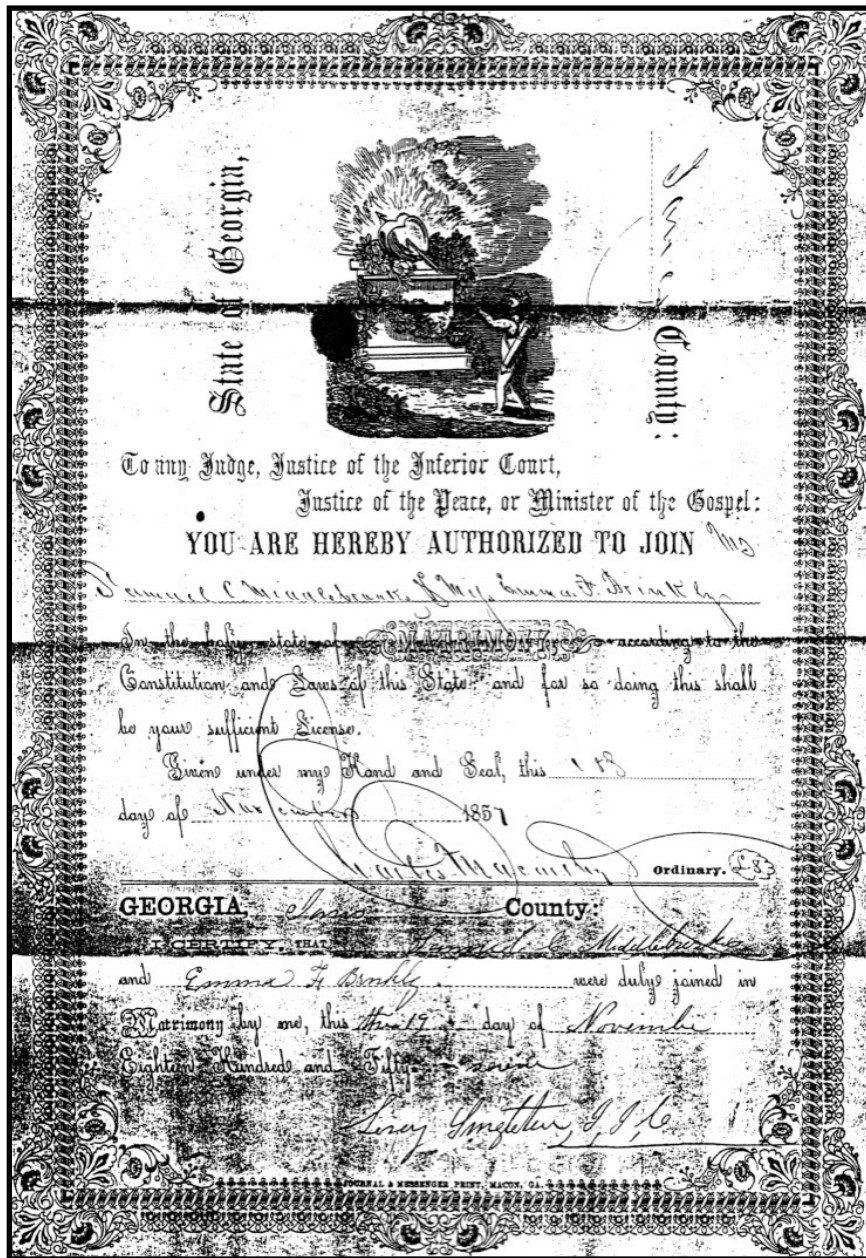 State of Georgia,
Jones County:
To any Judge, Justice of the Inferior Court,
Justice of the Peace, or Minister of the Gospel:
YOU ARE HEREBY AUTHORIZED TO JOIN
Samuel C Middlebrooks & Miss Emma F. Brinkly
In the holy state of MATRIMONY, according to the
Constitution and Laws of this State and for so doing this shall
be your sufficient License.
Given under my Hand and Seal, this
day of November 1857
Charles Ordinary. L.S.
GEORGIA, Jones County:
I CERTIFY, THAT Samuel C
and Emma F were duly joined in
Matrimony by me, this the 19 day of
Eighteen Hundred and Fifty seven
J. I. C.
JOURNAL & MESSENGER PRINT, MACON, GA.